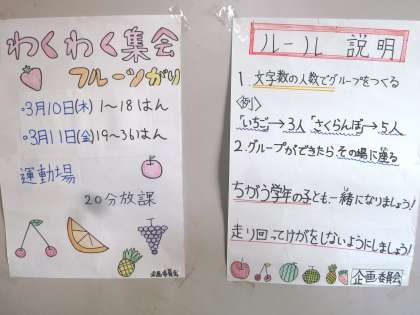 わくわく集会
フルーツがり
・3月10日(木) 1〜18はん
・3月11日(金) 19〜36はん
運動場
20分放課
企画委員会
ルール説明
1. 文字数の人数でグループをつくる
〈例〉
「いちご」→3人 「さくらんぼ」→5人
2. グループができたら その場に座る
ちがう学年の子とも一緒になりましょう!
走り回ってけがをしないようにしましょう!
企画委員会